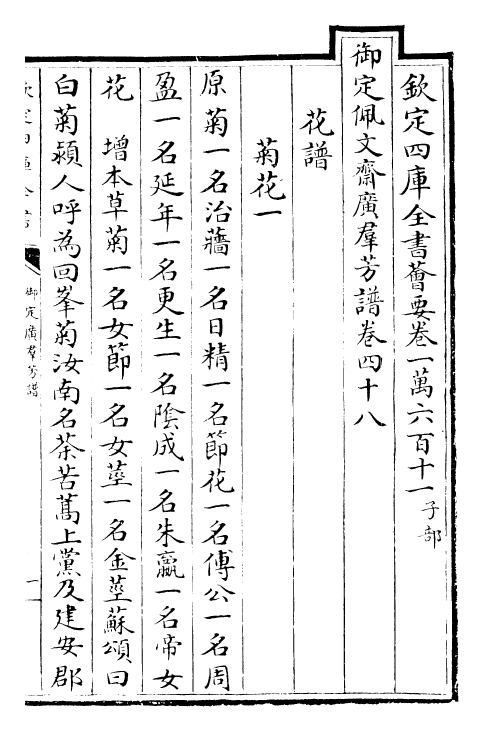 欽定四庫全書薈要卷一萬六百十一子部
御定佩文齋廣羣芳譜卷四十八
花譜
菊花一
原菊一名治蘠一名日精一名節花一名傅公一名周
盈一名延年一名更生一名陰成一名朱嬴一名帝女
花 增本草菊一名女節一名女莖一名金莖蘇頌曰
白菊潁人呼為回峯菊汝南名茶苦蒿上黨及建安郡
御定廣羣芳譜
一